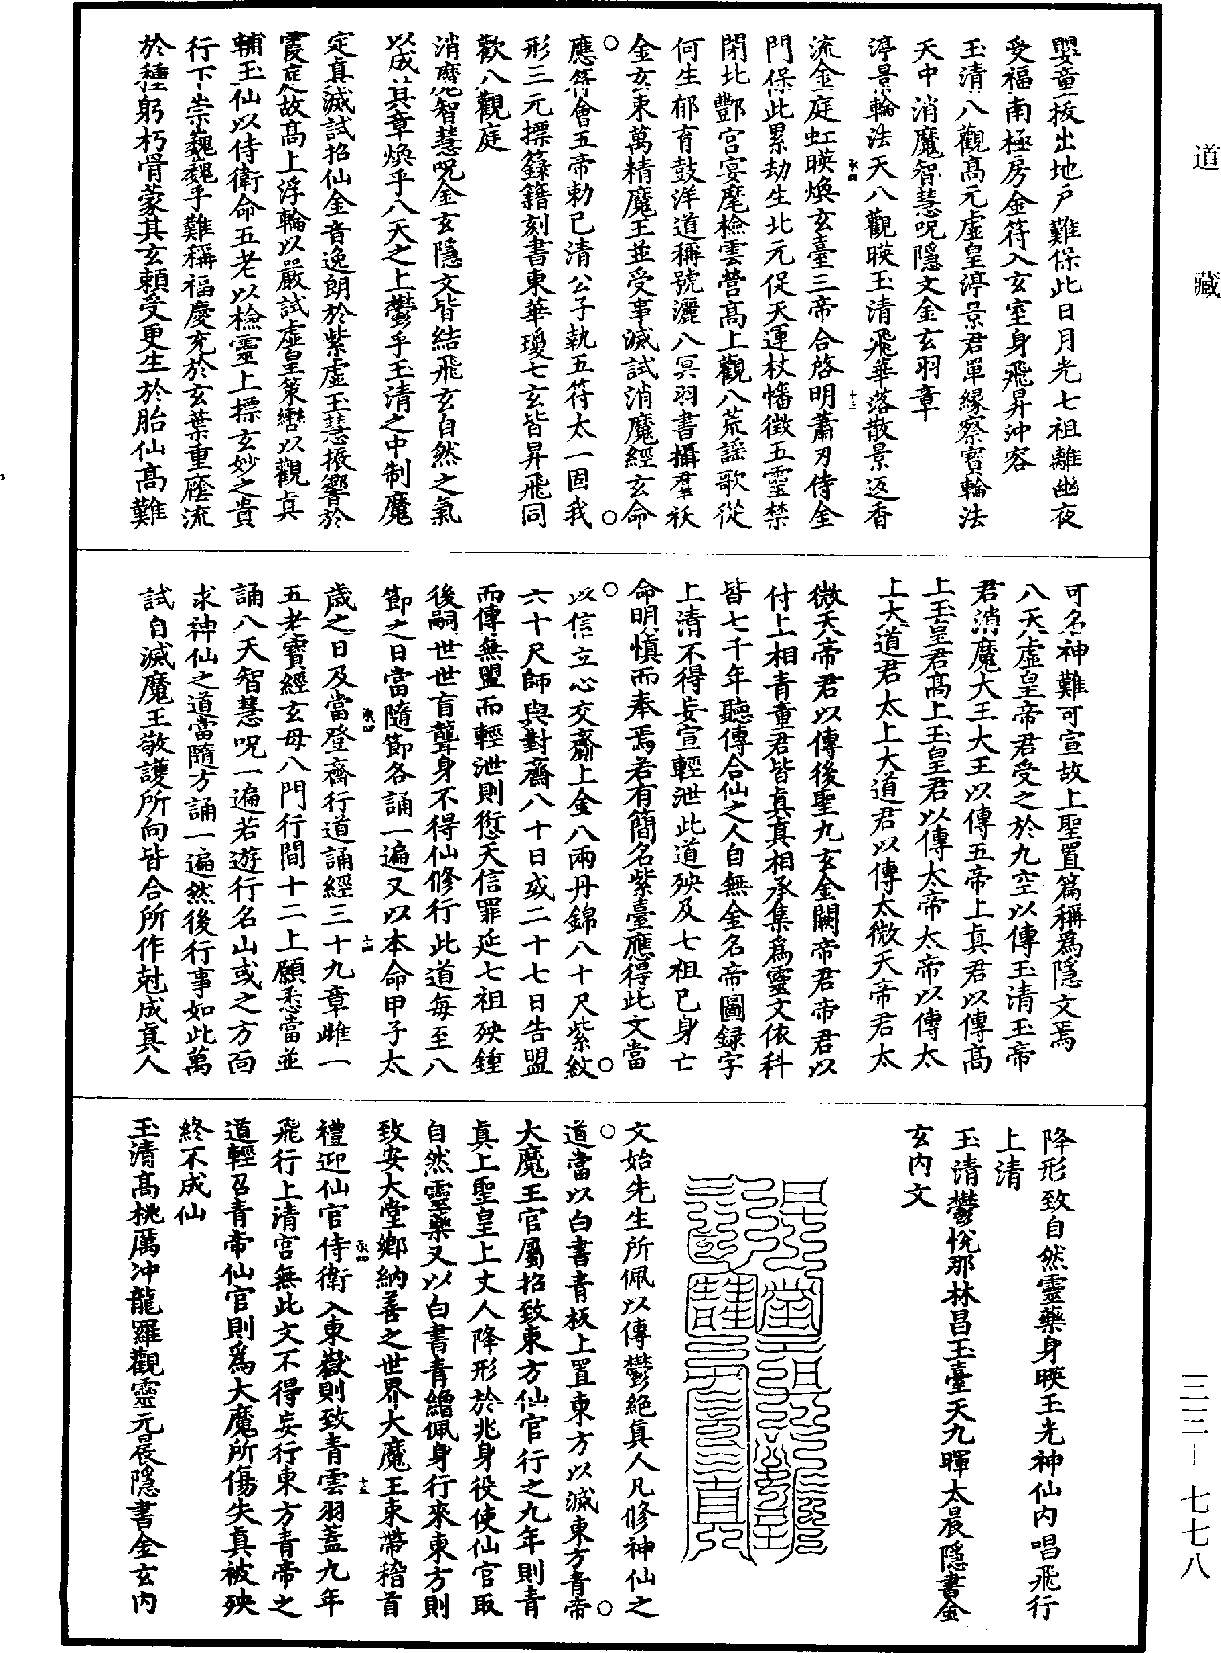 道藏
嬰童拔出地戶難保此日月光七祖離幽夜
受福南極房金符入玄室身飛昇沖客
玉清八觀高元虛皇渟景君單緣察寶輪法
天中消魔智慧呪隱文金玄羽章
渟景輪法天八觀暎玉清飛華落散景返香
流金庭虹暎煥玄臺三帝合啓明蕭刃侍金
門保此累劫生北元促天運杖幡徵五靈禁
閉北酆宮宴麾檢雲營高上觀八荒謡歌從
何生郁育鼓洋道稱號灑八冥羽書攝群祅
金玄束萬精魔王並受事滅試消魔經玄命
應符會五帝勑已清公子執五符太一固我
形三元摽籙籍刻書東華瓊七玄皆昇飛同
歡八觀庭
消魔智慧呪金玄隱文皆結飛玄自然之氣
以成其章煥乎八天之上鬱乎玉清之中制魔
定真滅試招仙金音逸朗於紫虛玉慧振響於
霞庭故高上浮輪以嚴試虛皇策轡以觀真
輔玉仙以侍衛命五老以檢靈上摽玄妙之貴
行下崇巍巍乎難稱福慶充於玄葉重廕流
於種躬朽骨蒙其玄頼受更生於胎仙高難
可名神難可宣故上聖置篇稱爲隱文焉
八天虛皇帝君受之於九空以傳玉清玉帝
君消魔大王大王以傳五帝上真君以傳高
上玉皇君高上玉皇君以傳太帝太帝以傳太
上大道君太上大道君以傳太微天帝君太
微天帝君以傳後聖九玄金闕帝君帝君以
付上相青童君皆真真相承集爲靈文依科
皆七千年聽傳合仙之人自無金名帝圖録字
上清不得妄宣輕泄此道殃及七祖已身亡
命明慎而奉焉若有簡名紫臺應得此文當
以信立心交齋上金八兩丹錦八十尺紫紋
六十尺師與對齋八十日或二十七日告盟
而傳無盟而輕泄則愆天信罪延七祖殃鍾
後嗣世世盲聾身不得仙修行此道每至八
節之日當隨節各誦一遍又以本命甲子太
歲之日及當登齋行道誦經三十九章雌一
五老寶經玄母八門行間十二上願悉當並
誦八天智慧呪一遍若遊行名山或之方面
求神仙之道當隨方誦一遍然後行事如此萬
試自滅魔王敬護所向皆合所作尅成真人
降形致自然靈藥身暎玉光神仙内唱飛行
上清
玉清鬱悅那林昌玉臺天九暉太晨隱書金
玄内文
文始先生所佩以傳鬱絶真人凡修神仙之
道當以白書青板上置東方以滅東方青帝
大魔王官屬招致東方仙官行之九年則青
真上聖皇上丈人降形於兆身役使仙官取
自然靈藥又以白書青繒佩身行來東方則
致安大堂鄉納善之世界大魔王束帶稽首
禮迎仙官侍衛入東嶽則致青雲羽蓋九年
飛行上清宮無此文不得妄行東方青帝之
道輕召青帝仙官則爲大魔所傷失真被殃
終不成仙
玉清高桃厲冲龍羅觀靈元晨隱書金玄内
三三—七七八